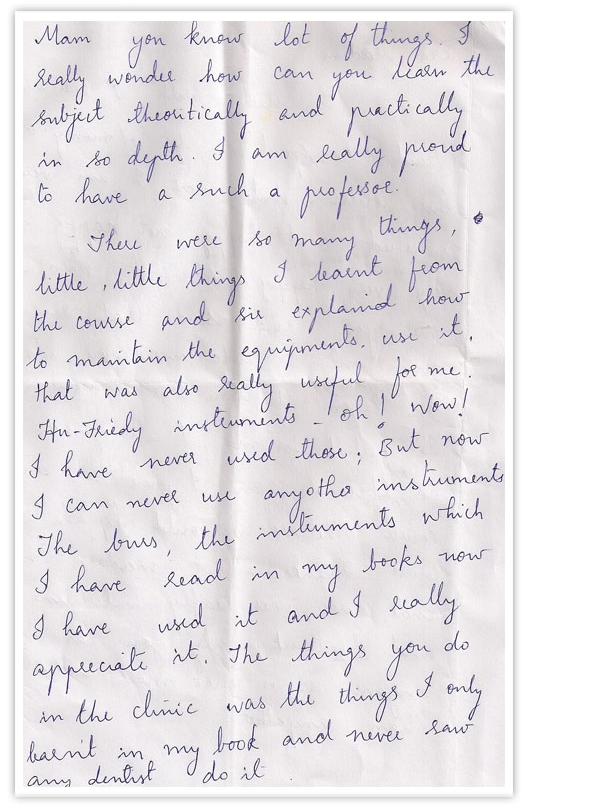 Mam you know lot of things. I
really wonder how can you learn the
subject theoritically and practically
in so depth. I am really proud
to have a such a professor.
There were so many things,
little, little things I learnt from
the course and sir explained how
to maintain the equipments, use it,
that was also really useful for me.
Hu-Friedy instruments - oh! Wow!
I have never used those; But now
I can never use anyother instruments
The burs, the instruments which
I have read in my books now
I have used it and I really
appreciate it. The things you do
in the clinic was the things I only
learnt in my book and never saw
any dentist do it.